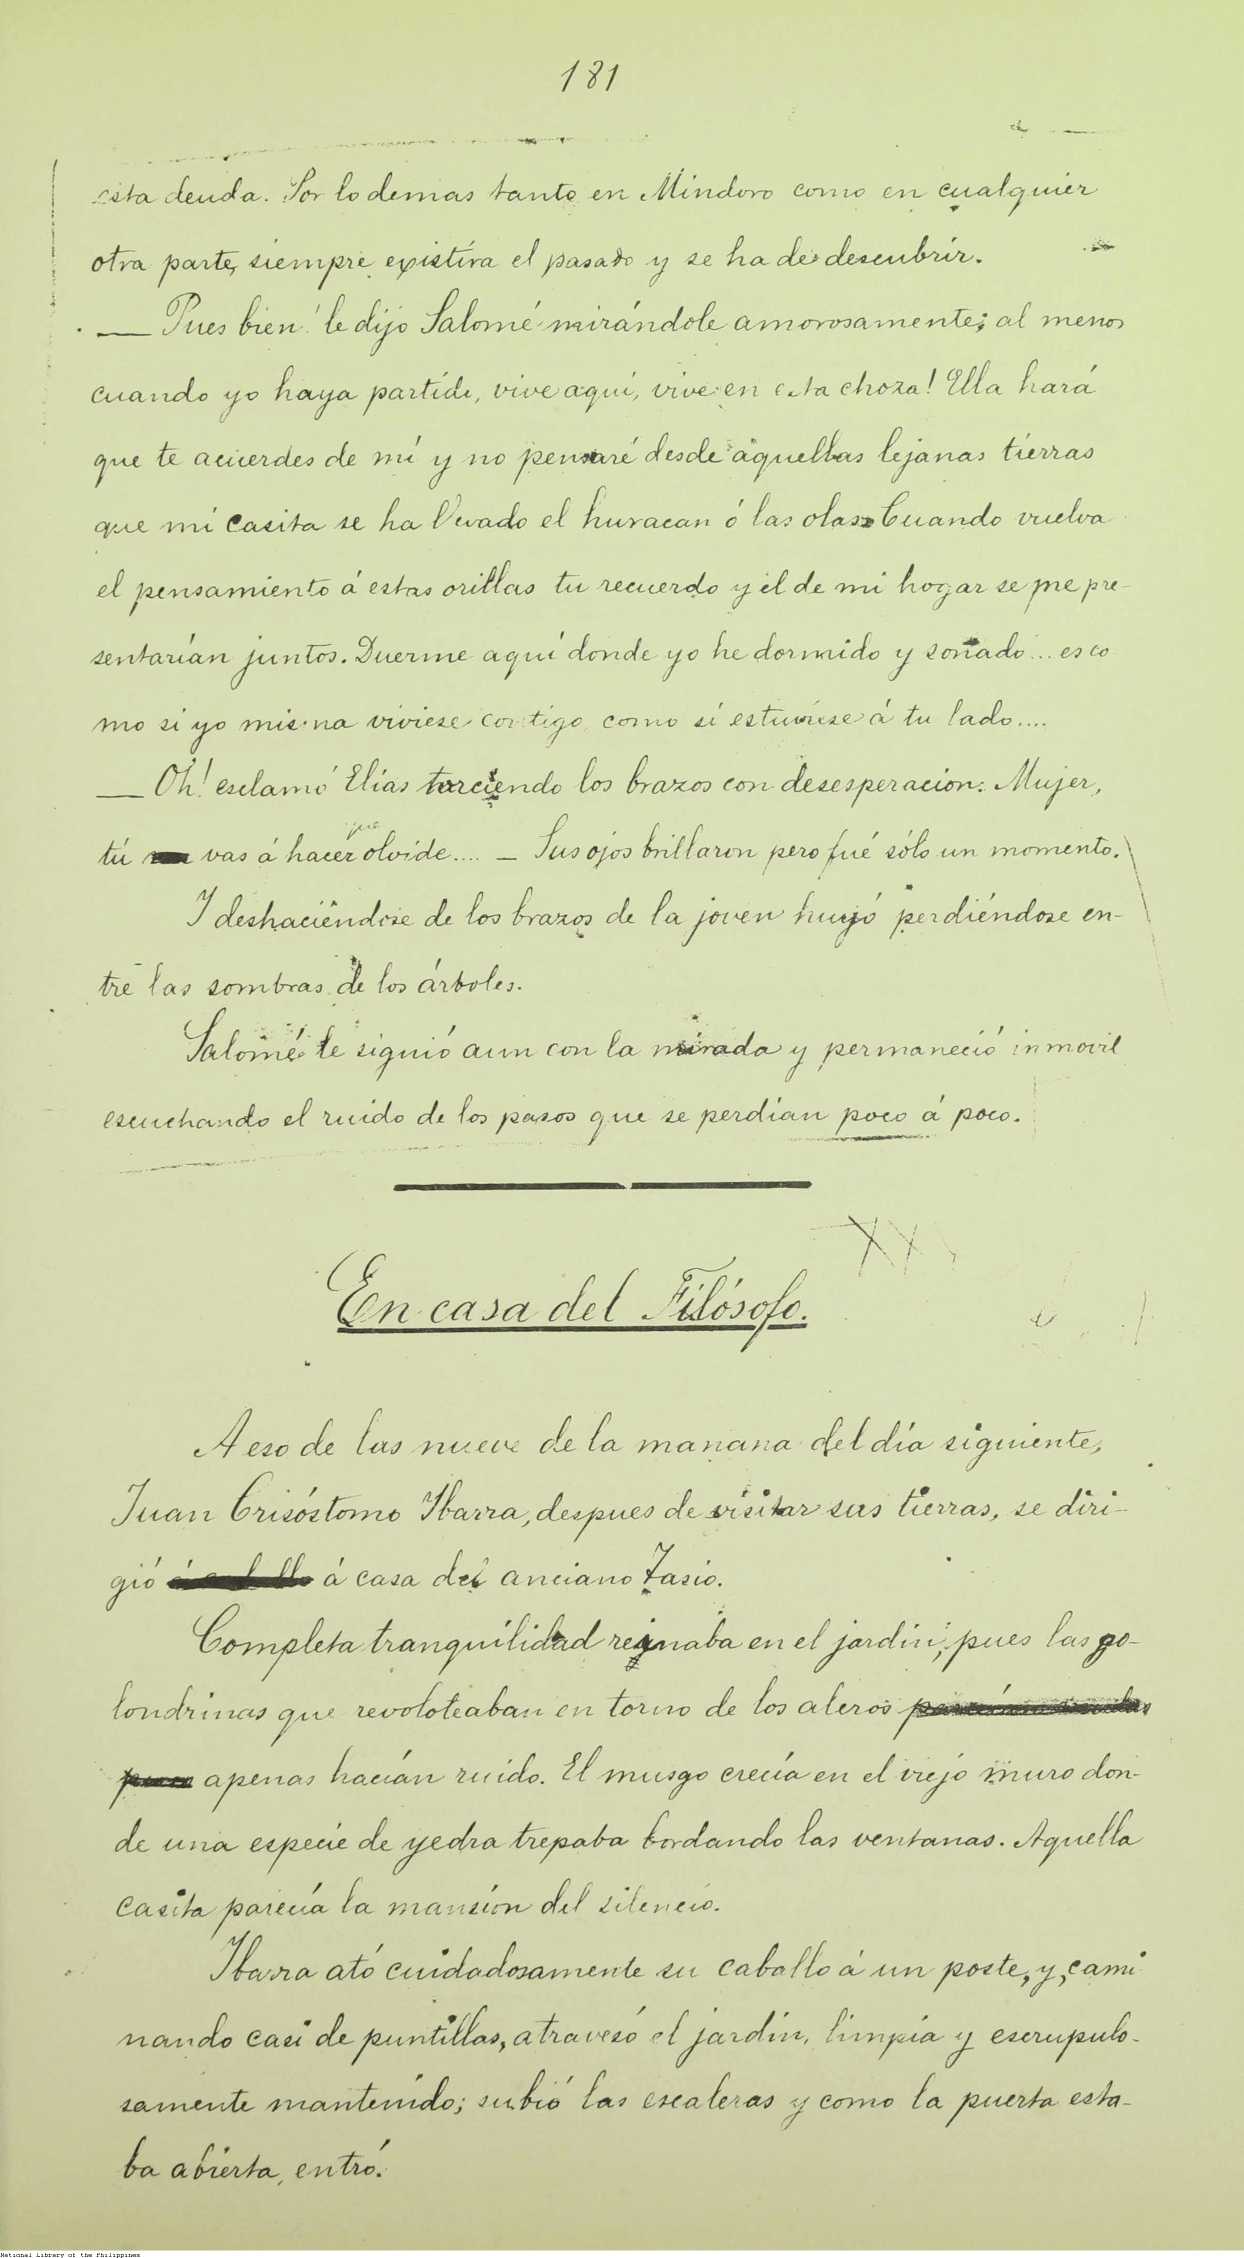 181
esta deuda. Por lo demas tanto en Mindoro como en cualquier
otra parte, siempre existira el pasado y se ha de descubrir.
— Pues bien! le dijo Salomé mirándole amorosamente; al menos
cuando yo haya partido, vive aquí, vive en esta choza! Ella hará
que te acuerdes de mí y no pensaré desde aquellas lejanas tierras
que mi casita se ha llevado el huracan ó las olas. Cuando vuelva
el pensamiento á estas orillas tu recuerdo y el de mi hogar se me pre-
sentarían juntos. Duerme aquí donde yo he dormido y soñado... es co
mo si yo misma viviese contigo, como si estuviese á tu lado....
— Oh! esclamó Elías torciendo los brazos con desesperacion: Mujer,
que
tú vas á hacer olvide.... — Sus ojos brillaron pero fué sólo un momento.
Y deshaciéndose de los brazos de la joven huyó perdiéndose en-
tre las sombras de los árboles.
Salomé le siguió aun con la mirada y permaneció inmovil
escuchando el ruido de los pasos que se perdian poco á poco.
XX
En casa del Filósofo.
A eso de las nueve de la mañana del día siguiente,
Juan Crisóstomo Ibarra, despues de visitar sus tierras, se diri-
gió á casa del anciano Tasio.
Completa tranquilidad reinaba en el jardin, pues las go-
londrinas que revoloteaban en torno de los aleros
apenas hacían ruido. El musgo crecía en el viejo muro don-
de una especie de yedra trepaba bordando las ventanas. Aquella
casita parecía la mansión del silencio.
Ibarra ató cuidadosamente su caballo á un poste, y, cami
nando casi de puntillas, atravesó el jardin, limpia y escrupulo-
samente mantenido; subió las escaleras y como la puerta esta-
ba abierta, entró.
National Library of the Philippines